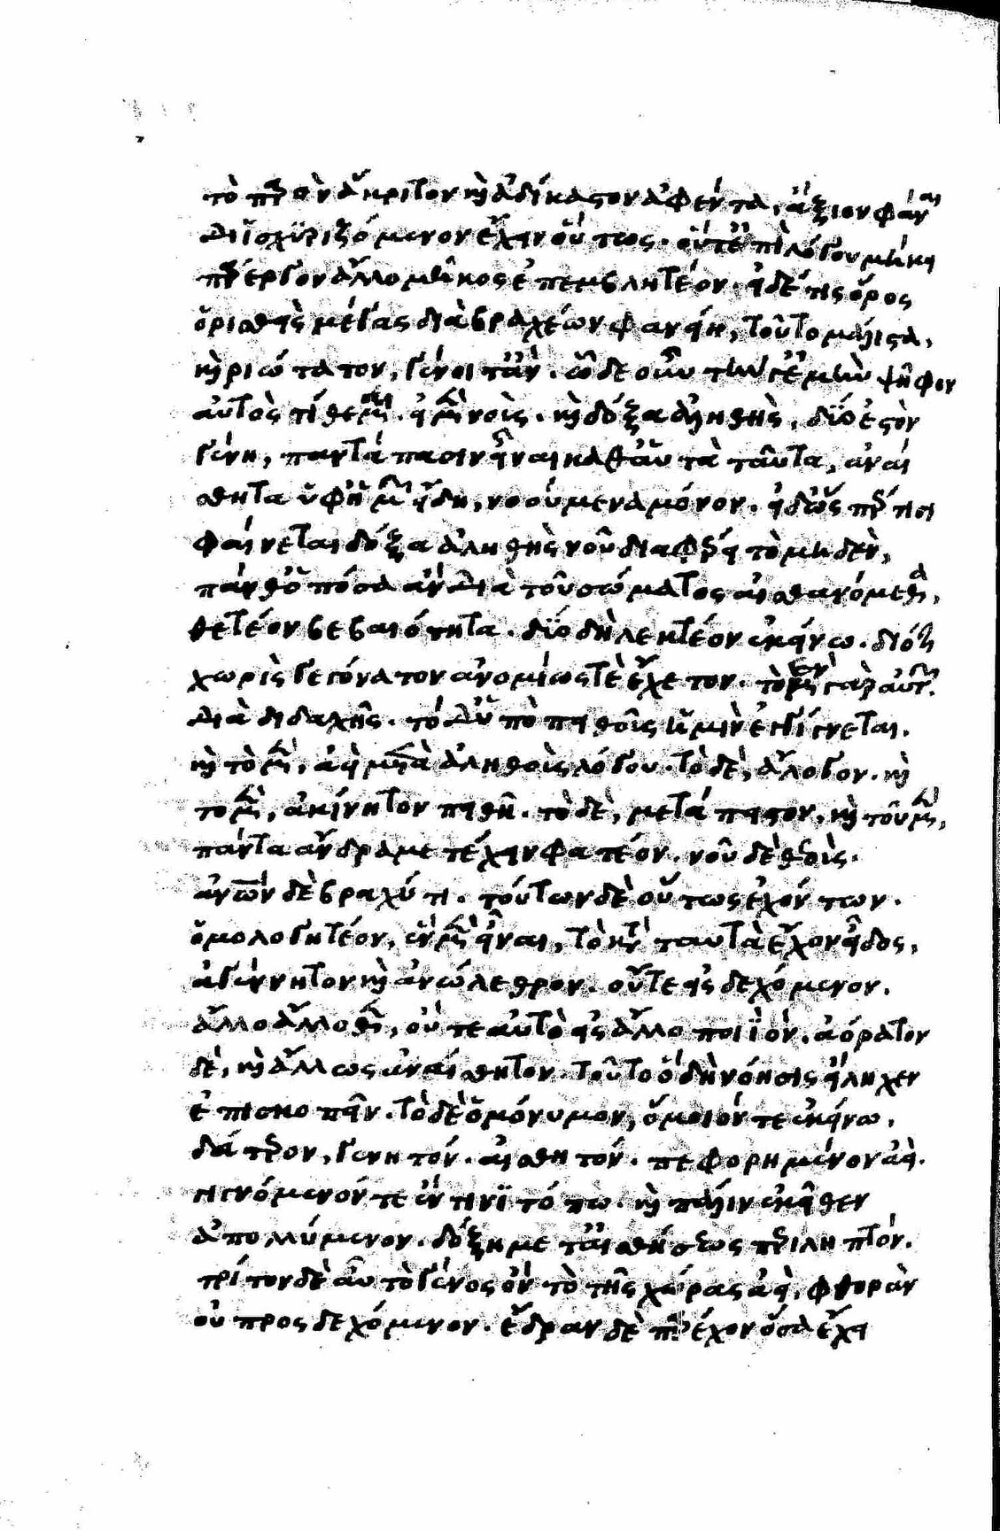 τὸ παρὸν ἄκριτον καὶ ἀδίκαστον ἀφέντα, ἄξιον φάναι
διϊσχϋριζόμενον ἔχειν οὕτως. οὔτ' ἐπὶ λόγου μήκει
πάρεργον ἄλλο μῆκος ἐπεμβλητέον. εἰ δέ τις ὅρος
ὁρισθεὶς μέγας διὰ βραχέων φανείη, τοῦτο μάλιστα,
καιριώτατον, γένοιτ' ἄν. ὧδε οὖν τὴν γ' ἐμὴν ψῆφον
αὐτὸς τίθεμαι. εἰ μὲν νοῦς. καὶ δόξα ἀληθὴς, δύο ἐστὸν
γένη, παντάπασιν εἶναι καθ' αὑτὰ ταῦτα, ἀναί
σθητα ὑφ' ἡμῶν εἴδη, νοούμενα μόνον. εἰ δ' ὥς τισι
φαίνεται δόξα ἀληθὴς νοῦ διαφέρει τὸ μηδὲν,
πάνθ' ὁπόσα αὖ διὰ τοῦ σώματος αἰσθανόμεθα,
θετέον βεβαιότητα. δύο δὴ λεκτέον ἐκείνω. διότι
χωρὶς γεγόνατον ἀνομίως τὲ ἔχετον. τὸ μὲν γὰρ αὐτῶν
διὰ διδαχῆς. τὸ δ' ὑπὸ πειθοῦς ἡμῖν ἐγγίγνεται.
καὶ τὸ μὲν, ἀεὶ μετὰ ἀληθοῦς λόγου. τὸ δὲ, ἄλογον. καὶ
το μὲν, ἀκίνητον πειθῆ. τὸ δὲ, μεταπειστον, καὶ τοῦ μὲν,
πάντα ἄνδρα μετέχειν φατέον. νοῦ δὲ θεοὺς.
ἀνων δὲ βραχύ τι. τούτων δὲ οὕτως ἐχόντων.
ὁμολογητέον, ἓν μὲν εἶναι, τὸ κατὰ ταυτὰ ἔχον εἶδος,
ἀγέννητον καὶ ἀνώλεθρον. οὔτε εἰσδεχόμενον.
ἄλλο ἄλλοθεν, οὔτε αὐτὸ εἰς ἄλλο ποι ἰὸν. ἀόρατον
δὲ, καὶ ἄλλως ἀναίσθητον. τοῦτο ὃ δὴ νόησις εἴληχεν
ἐπισκοπεῖν. τὸ δὲ ὁμόνυμον, ὅμοιόν τε ἐκείνω.
δεύτερον, γενητόν. αἰσθητόν. πεφορημένον ἀεὶ.
γιγνόμενόν τε ἔν τινϊ τόπω. καὶ πάλιν ἐκεῖθεν
ἀπολλύμενον. δόξη μετ' αἰσθήσεως περιληπτόν.
τρίτον δὲ αὖ τὸ γένος ὂν τὸ τῆς χώρας ἀεὶ, φθορὰν
οὐ προσδεχόμενον. ἕδραν δὲ παρέχον ὅσα ἔχει